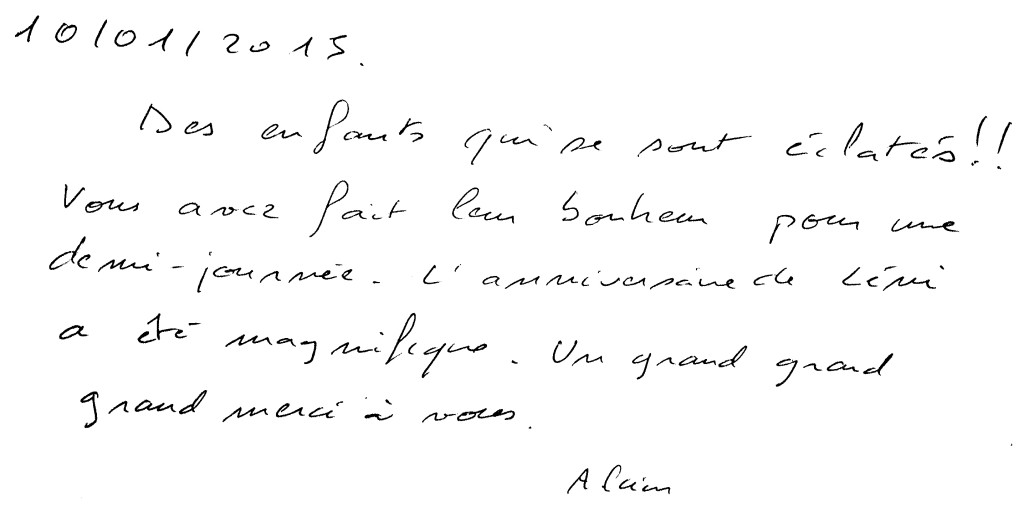 10/01/2015.
Des enfants qui se sont éclatés!!
Vous avez fait leur bonheur pour une
demi-journée. L'anniversaire de Léni
a été magnifique. Un grand grand
grand merci à vous.
Alain